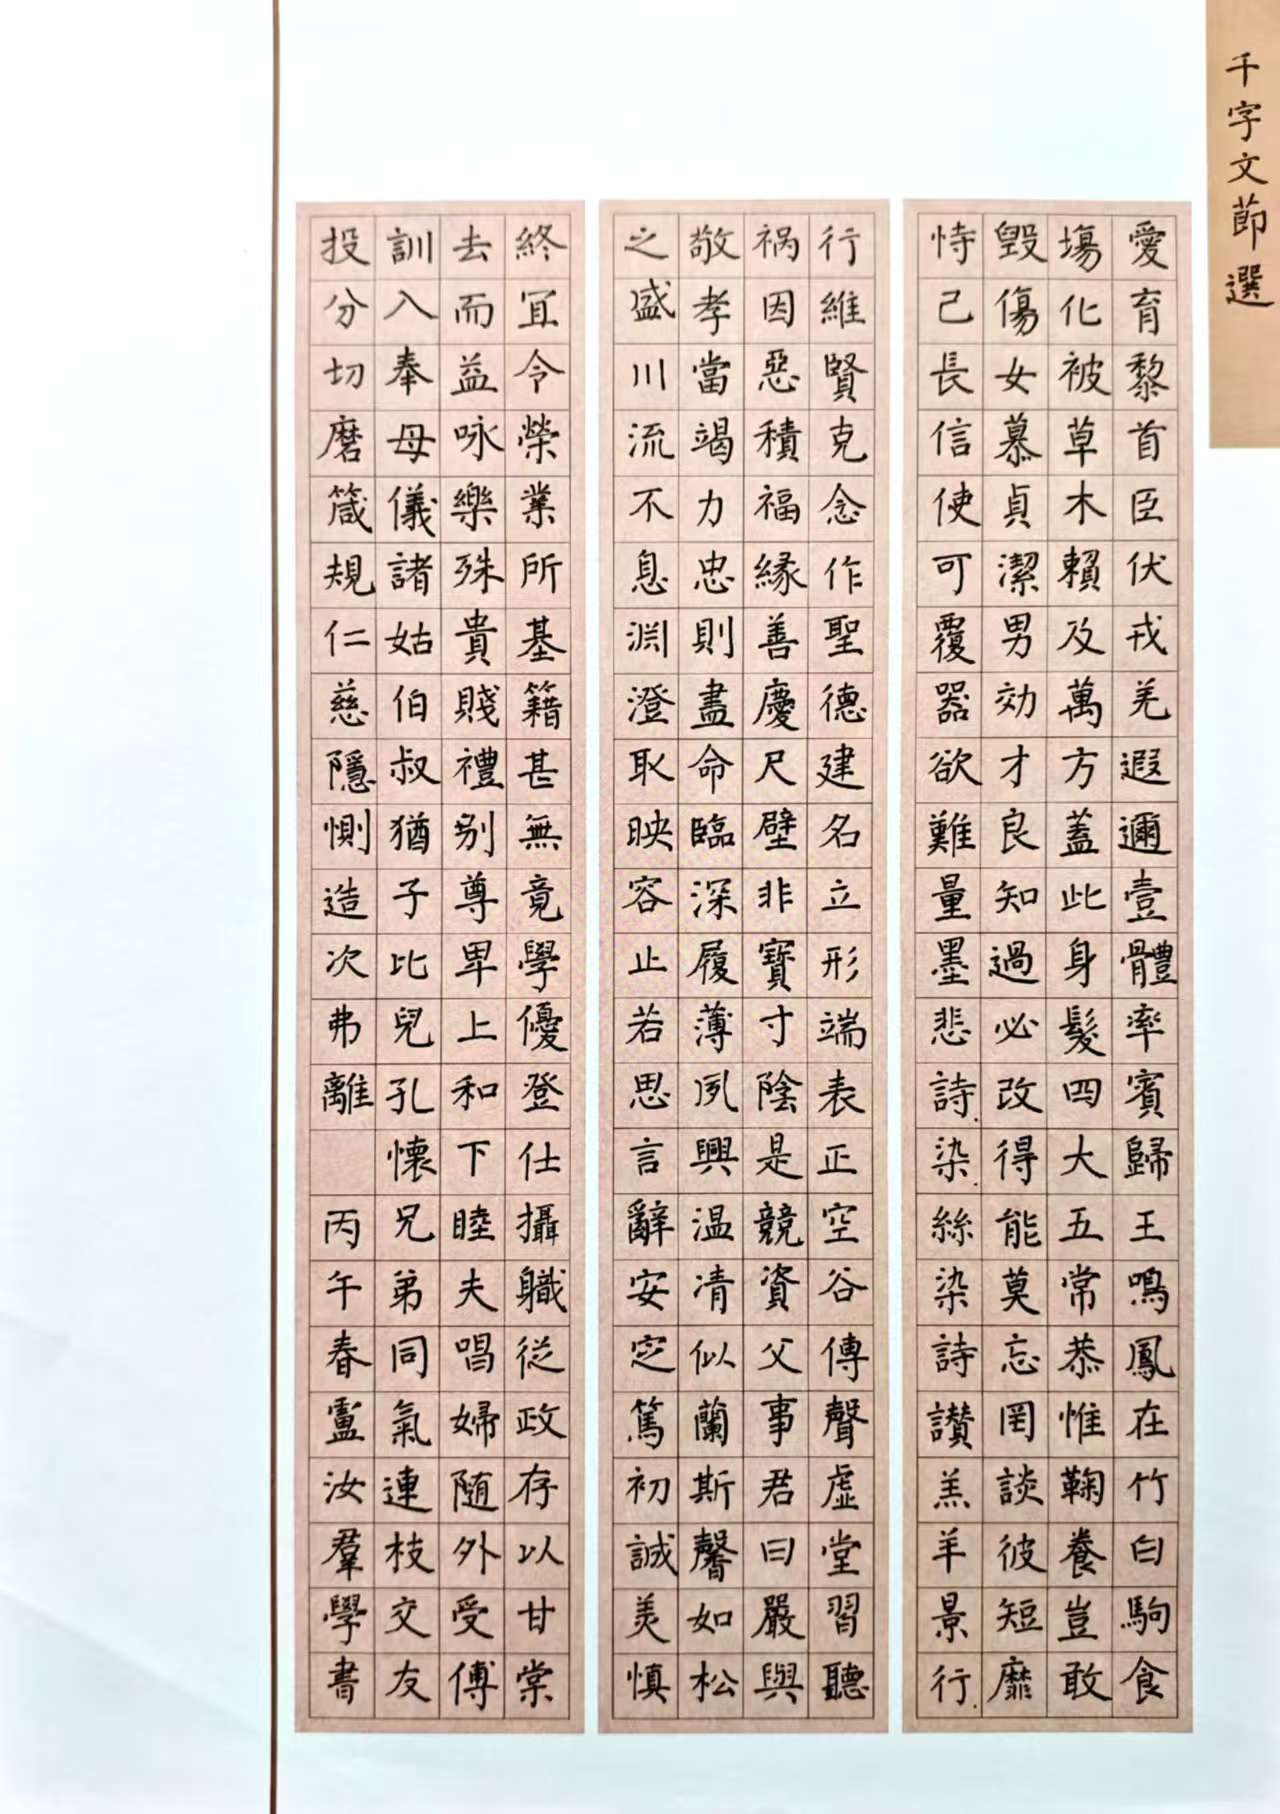 千字文節選
愛育黎首臣伏戎羌遐邇壹體率賓歸王鳴鳳在竹白駒食
場化被草木賴及萬方蓋此身髮四大五常恭惟鞠養豈敢
毀傷女慕貞潔男効才良知過必改得能莫忘罔談彼短靡
恃己長信使可覆器欲難量墨悲詩染絲染詩讚羔羊景行
行維賢克念作聖德建名立形端表正空谷傳聲虛堂習聽
祸因惡積福緣善慶尺璧非寶寸陰是競資父事君曰嚴與
敬孝當竭力忠則盡命臨深履薄夙興温凊似蘭斯馨如松
之盛川流不息渊澄取映容止若思言辭安定篤初誠美慎
終宜令榮業所基籍甚無竟學優登仕攝職從政存以甘棠
去而益咏樂殊貴賤禮别尊卑上和下睦夫唱婦随外受傅
訓入奉母儀諸姑伯叔猶子比兒孔懷兄弟同氣連枝交友
投分切磨箴規仁慈隱惻造次弗離 丙午春盧汝羣學書